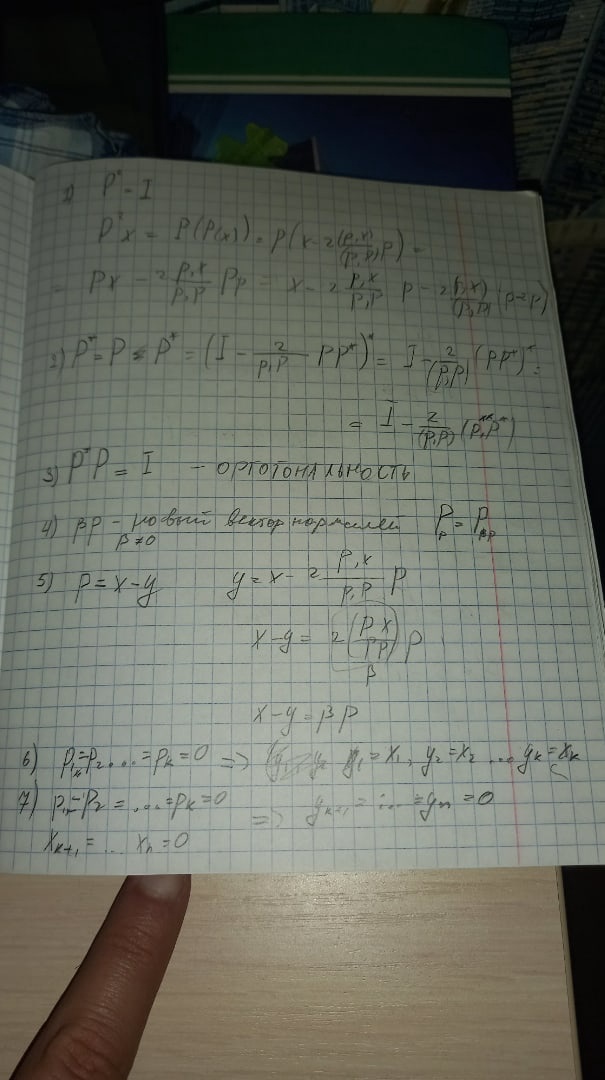 1) P² = I
P²x = P(P(x)) = P(x - 2 (p,x)/(p,p) p) =
= Px - 2 p,x/p,p Pp = x - 2 p,x/p,p p - 2 (p,x)/(p,p) (p-2p)
2) P* = P P* = (I - 2/p,p pp*)* = I - 2/(p,p) (pp*)* =
= I - 2/(p,p) (p** p*)
3) P*P = I - ортогональность
4) βp - новый вектор нормалей P_p = P_βp
β≠0
5) p = x-y y = x - 2 p,x/p,p p
x-y = 2 (p x/p p) p
β
x-y = βp
6) p₁=p₂...=pₖ=0 => y₁=x₁, y₂=x₂ ... yₖ=xₖ
7) p₁=p₂=...=pₖ=0 => yₖ₊₁=...=yₙ=0
xₖ₊₁=... xₙ=0